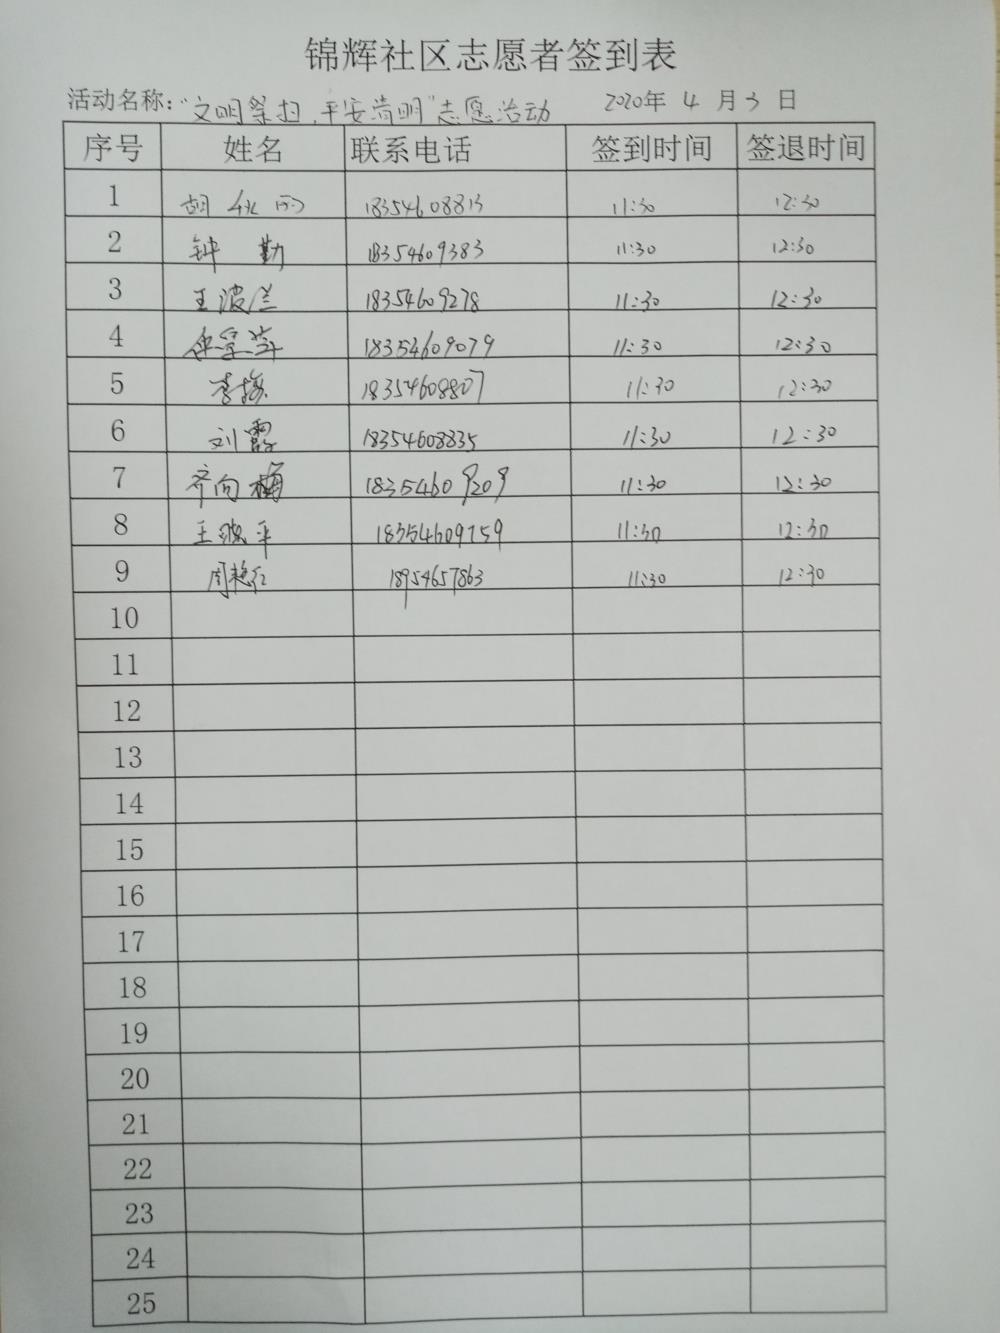 锦辉社区志愿者签到表
活动名称：“文明祭扫，平安清明”志愿活动 2020年 4 月 3 日
序号 姓名 联系电话 签到时间 签退时间
1 胡秋雨 18354608813 11:30 12:30
2 钟勤 18354609383 11:30 12:30
3 王波兰 18354609278 11:30 12:30
4 18354609079 11:30 12:30
5 李梅 18354608807 11:30 12:30
6 刘霞 18354608835 11:30 12:30
7 齐向梅 18354609209 11:30 12:30
8 王 平 18354609759 11:30 12:30
9 周艳红 18954657863 11:30 12:30
10
11
12
13
14
15
16
17
18
19
20
21
22
23
24
25